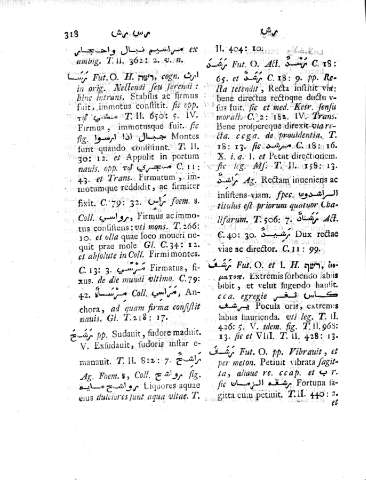 318
مرسى مرش
مرش
مراسيم نبال واحجار ex
ambig. T. II. 362: 2. v. n.
رسا Fut. O. H. cogn. ارث
in orig. Nellendi seu ferendi:
hinc intrans. Stabilis ac firmus
fuit, immotus constitit. sic opp.
مشى T. II. 650: 5. IV.
Firmus, immotusque fuit. sic
fig. جبال اذا ارسوا Montes
sunt quando constituunt. T. II.
30: 12. et Appulit in portum
navis. opp. C. 11:
43. et Trans. Firmatum,
immotumque reddidit, ac firmiter
fixit. C. 79: 32. foem. 8.
Coll. رواسى Firmius ac immo-
tus consistens: uti mons. T. 266:
10. et olla quae loco moveri ne-
quit prae mole Gl. C. 34: 12.
et absolute in Coll. Firmi montes.
C. 13: 3. Firmatus, fi-
xus. de die mundi ultimo. C. 79:
42. Coll. مراسى, An-
chora, ad quam firma consistit
navis. Gl. T. 218: 17.
رشح pp. Sudavit, sudore maduit.
V. Exsudavit, sudoris instar e-
manavit. T. II. 822: 7. راشح
Ag. Foem. 8, Coll. رواشح fig.
رواشح مايه Liquores aquae
enus dulciores sunt aqua vitae. T.
II. 404: 10.
رشد Fut. O. Act. رشد C. 18:
65. et رشد C. 18: 9. pp. Re-
cta tetendit, Recta institit viã:
bene directus rectoque ductu vi-
sus fuit. sic et med. Kesr. sensu
morali. C. 2: 182. IV. Trans.
Bene prosperque direxit via re-
cta. ccga. de providentia. T.
18: 13. sic مرشد C. 18: 16.
X. i. a. l. et Petiit directionem.
sic leg. MS. T. II. 158: 13.
راشد Ag. Rectam inveniens ac
insistens viam. spec. الراشدون
titulus est priorum quatuor Cha-
lifarum. T. 506: 7. رشيد Act.
C. 40: 30. مرشد Dux rectae
viae ac director. C. 11: 99.
رشف Fut. O. et I. H. im-
peratum. Extremis sorbendo labiis
bibit, et velut sugendo hausit.
cca. egregie كاس ثغر
رشف Pocula oris, extremis
labris haurienda. uti leg. T. II.
426: 5. V. idem. fig. T. II. 968:
13. sic et VIII. T. II. 428: 13.
رشق Fut. O. pp. Vibravit, et
per meton. Petiit vibrata sagit-
ta, aliave re. ccap. et ب r. sic
رشقه الزمان Fortuna sa-
gitta eum petiuit. T. II. 440: 2.
et